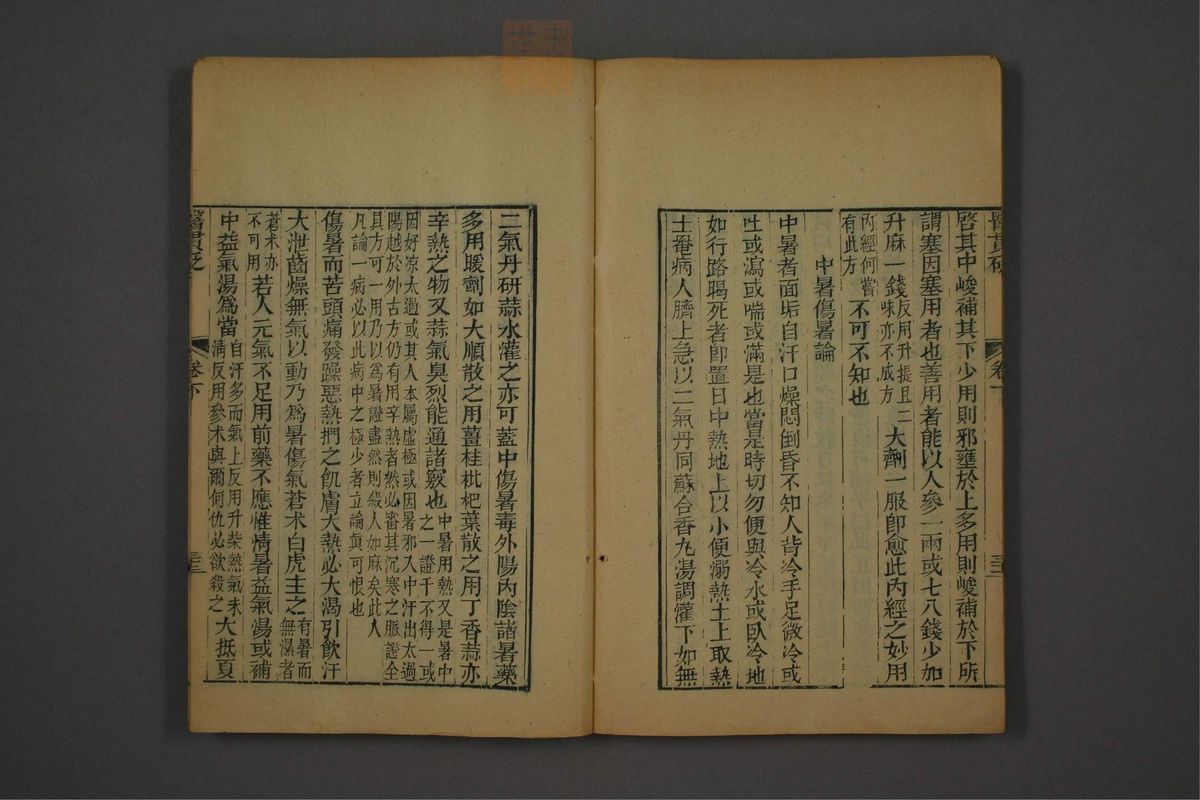 啓其中峻補其下少用則邪壅於上多用則峻補於下所
謂塞因塞用者也善用者能以人參一兩或七八錢少加
升麻一錢反用升提且一二味亦不成方大劑一服卽愈此內經之妙用
內經何嘗有此方不可不知也
中暑傷暑論
中暑者面垢自汗口燥悶倒昏不知人背冷手足微冷或
吐或瀉或喘或滿是也當是時切勿便與冷水或臥冷地
如行路暍死者卽置日中熱地上以小便溺熱土上取熱
土罨病人臍上急以二氣丹同蘇合香丸湯調灌下如無
醫貫砭
卷下
三三
二氣丹研蒜水灌之亦可蓋中傷暑毒外陽內陰諸暑藥
多用暖劑如大順散之用薑桂枇杷葉散之用丁香蒜亦
辛熱之物又蒜氣臭烈能通諸竅也中暑用熱又是暑中之一證千不得一或
因好凉太過或其人本屬虛極或因暑邪入中汗出太過
陽越於外古方仍有用辛熱者然必審其沉寒之脈證全
具方可一用乃以爲暑證盡然則殺人如麻矣此人
凡論一病必以此病中之極少者立論眞可恨也
傷暑而苦頭痛發躁惡熱捫之肌膚大熱必大渴引飮汗
大泄齒燥無氣以動乃爲暑傷氣蒼术白虎主之有暑而無濕者
蒼术亦不可用若人元氣不足用前藥不應惟情暑益氣湯或補
中益氣湯爲當自汗多而氣上反用升柴熱氣未淸反用參术與爾何仇必欲殺之大抵夏